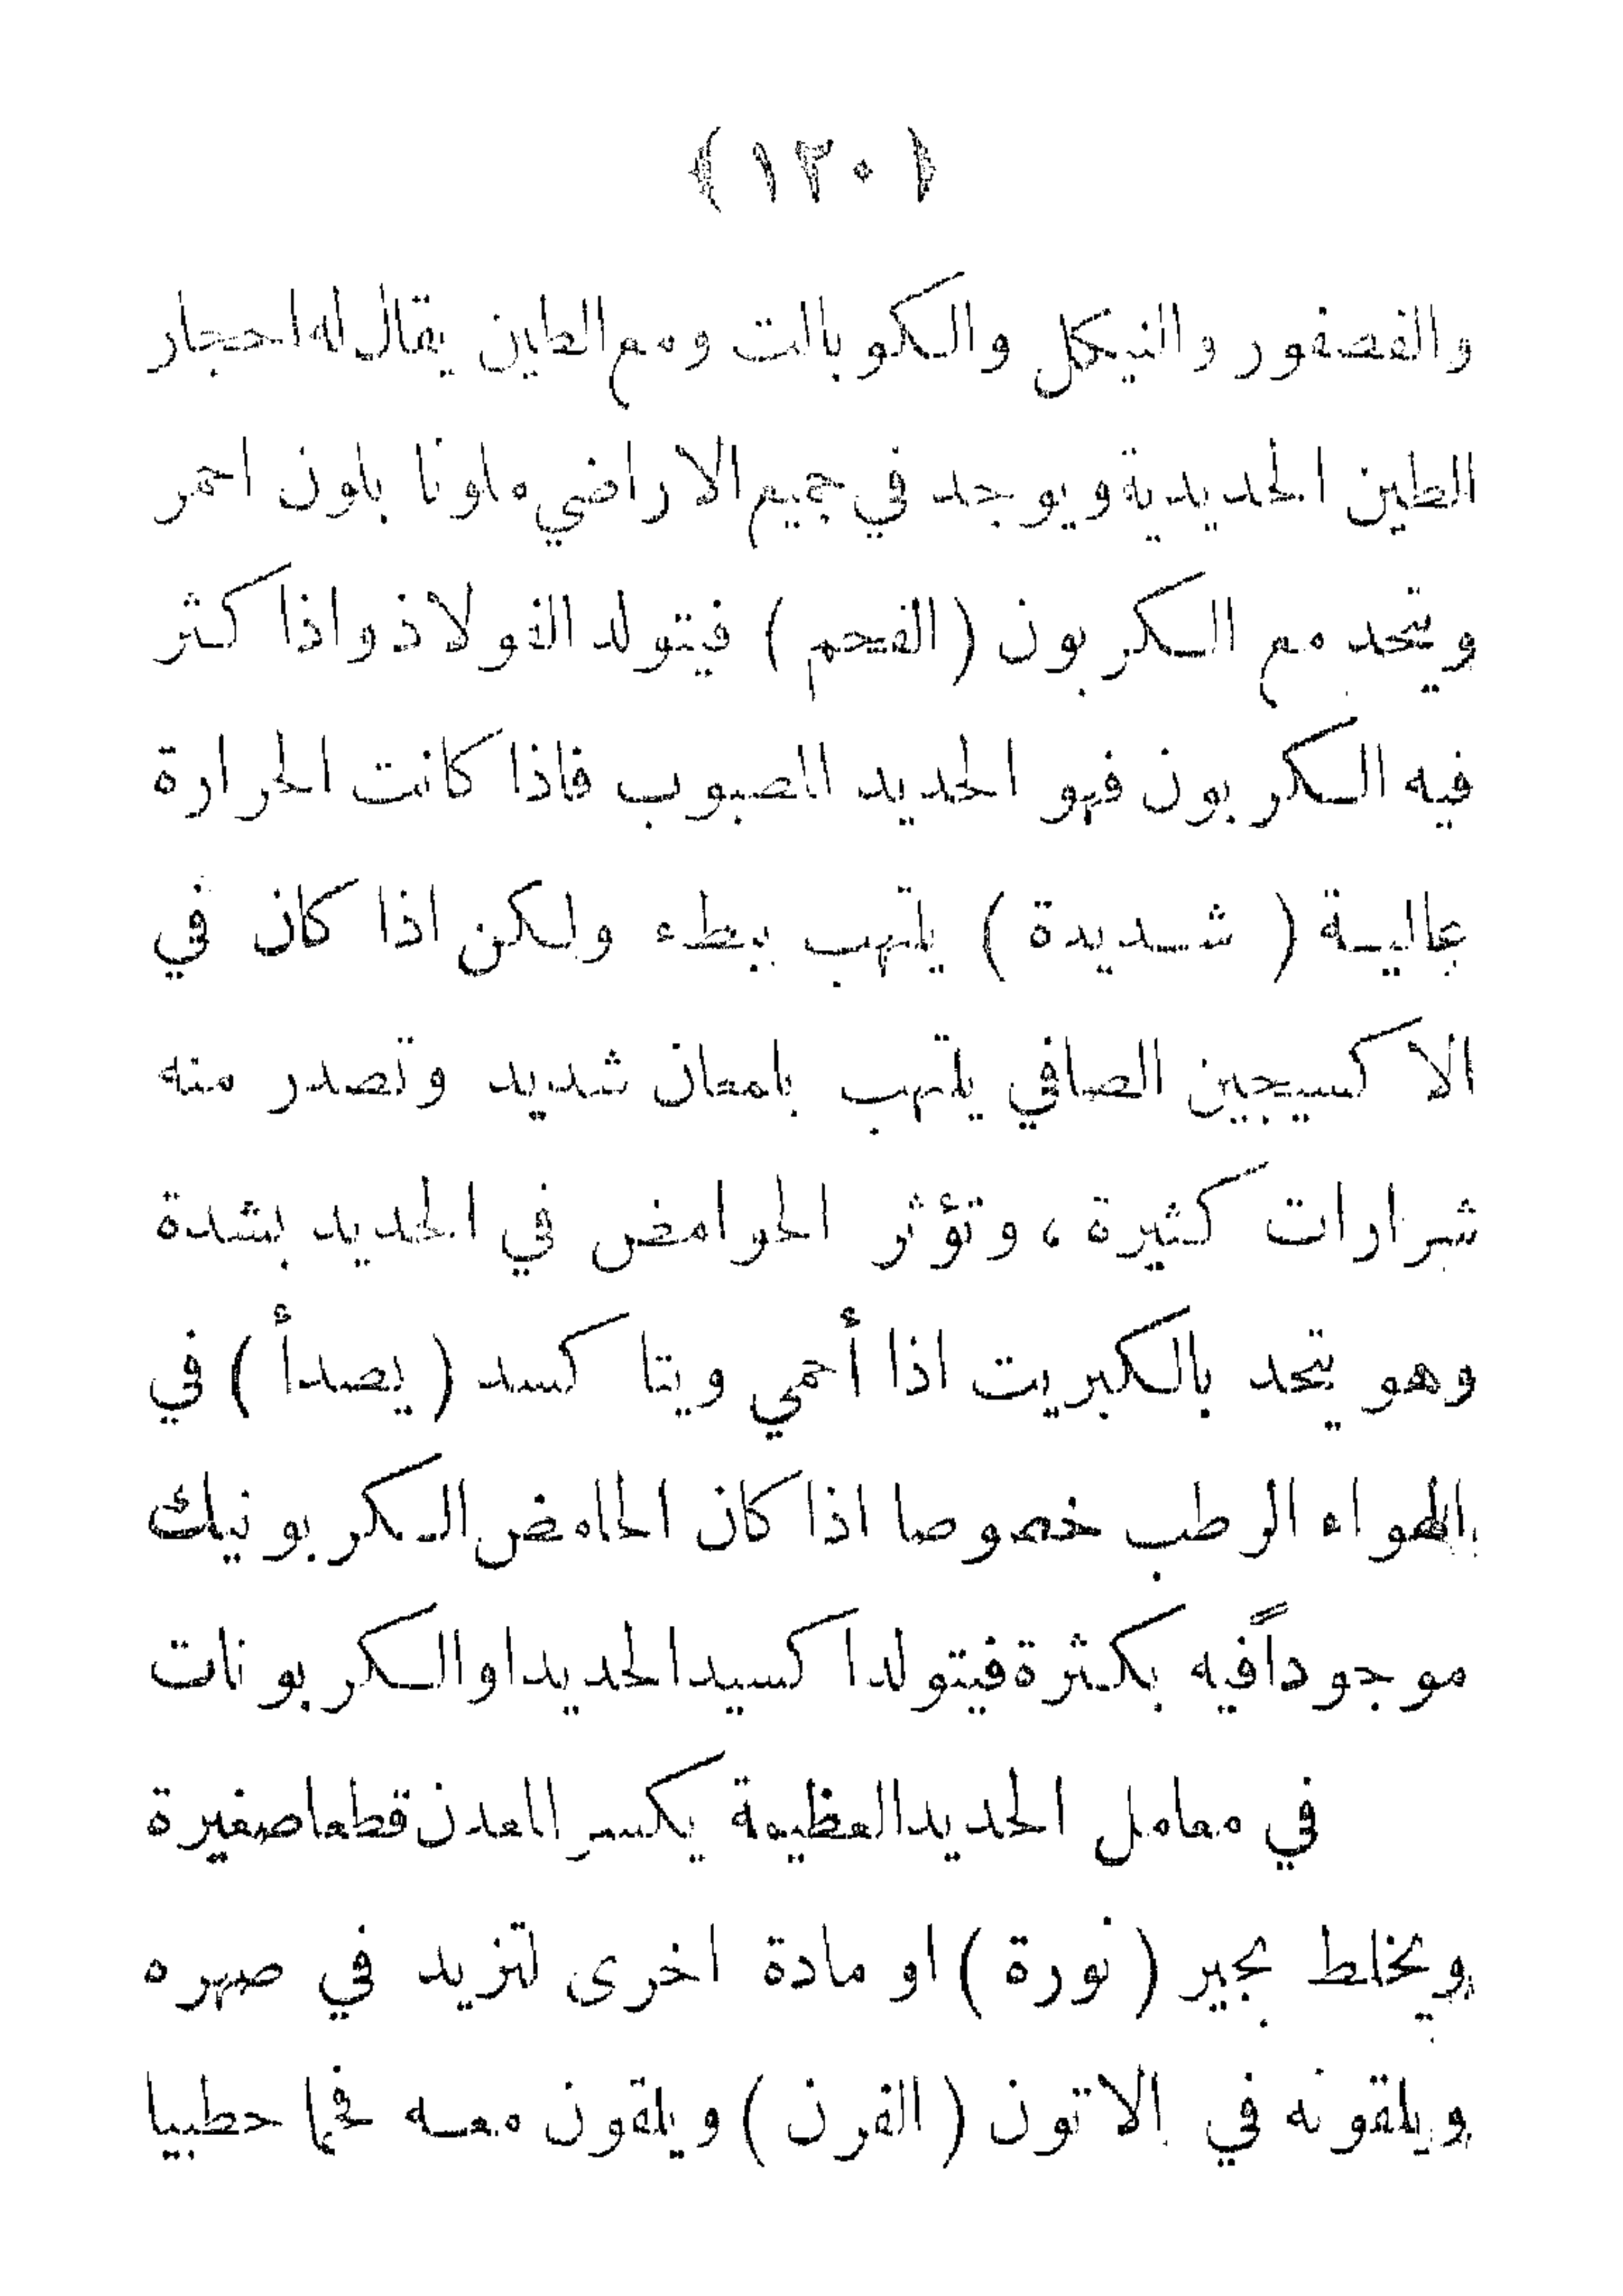 ﴿ ١٣٠ ﴾
والفصفور والنيكل والكوبالت ومع الطين يقال له احجار
الطين الحديدية ويوجد في جميع الاراضي ملونا بلون احمر
ويتحد مع الكربون ( الفحم ) فيتولد الفولاذ واذا كثر
فيه الكربون فهو الحديد المصبوب فاذا كانت الحرارة
عالية ( شديدة ) يلتهب ببطء ولكن اذا كان في
الاكسيجين الصافي يلتهب بامعان شديد وتصدر منه
شرارات كثيرة ، وتؤثر الحوامض في الحديد بشدة
وهو يتحد بالكبريت اذا أحمي ويتاكسد ( يصدأ ) في
الهواء الرطب خصوصا اذا كان الحامض الكربونيك
موجوداً فيه بكثرة فيتولد اكسيد الحديد او الكربونات
في معامل الحديد العظيمة يكسر المعدن قطعا صغيرة
ويخلط بجير ( نورة ) او مادة اخرى لتزيد في صهره
ويلقونه في الاتون ( الفرن ) ويلقون معه فحما حطبيا